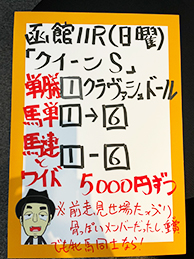 函館11R(日曜)
「クイーンS」
単勝1クラヴァシュドール
馬単1→6
馬連と
ワイド 1-6
5000円ずつ
※前走見せ場たっぷり
骨っぽいメンバーだったし、
でも牝馬同士なら!